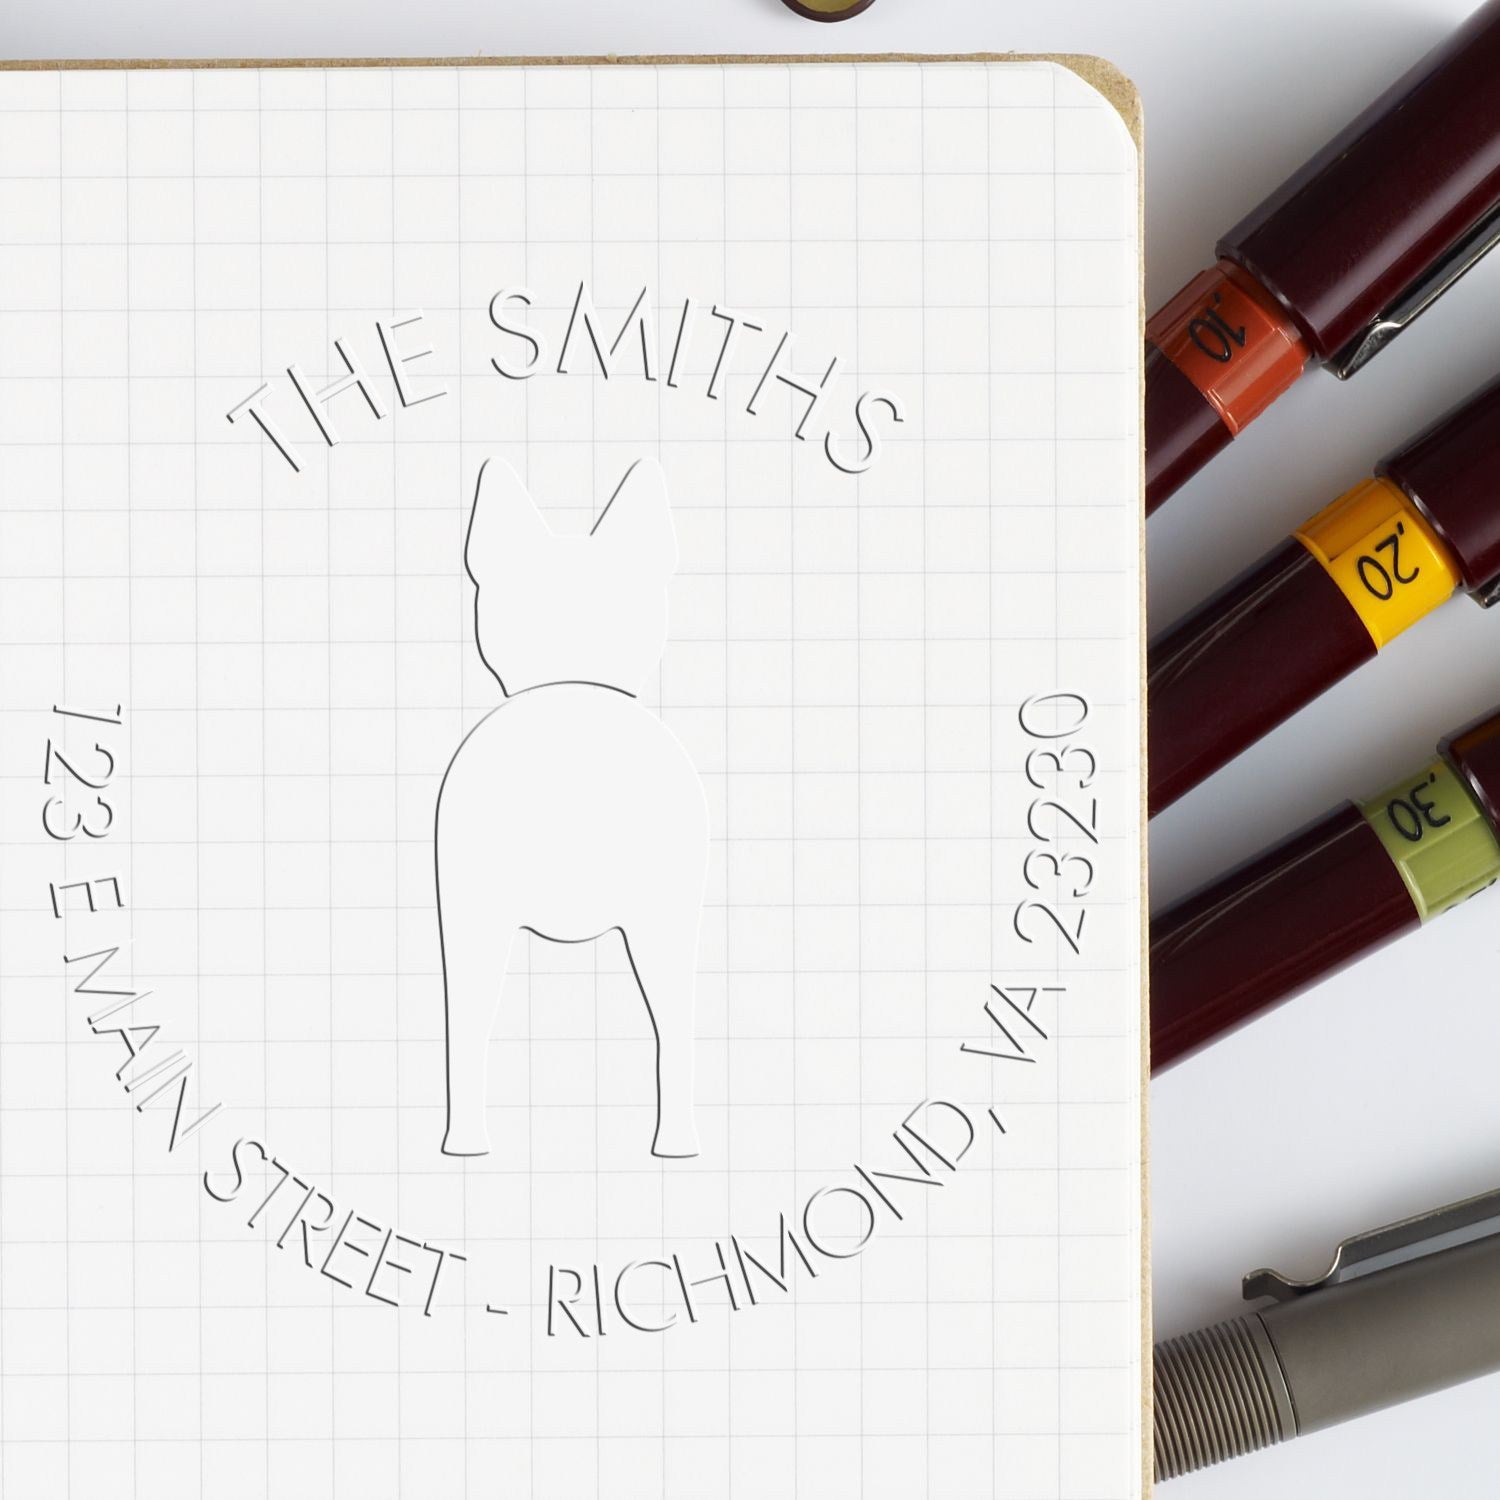 THE SMITHS
123 E MAIN STREET - RICHMOND, VA 23230
.10
.20
.30